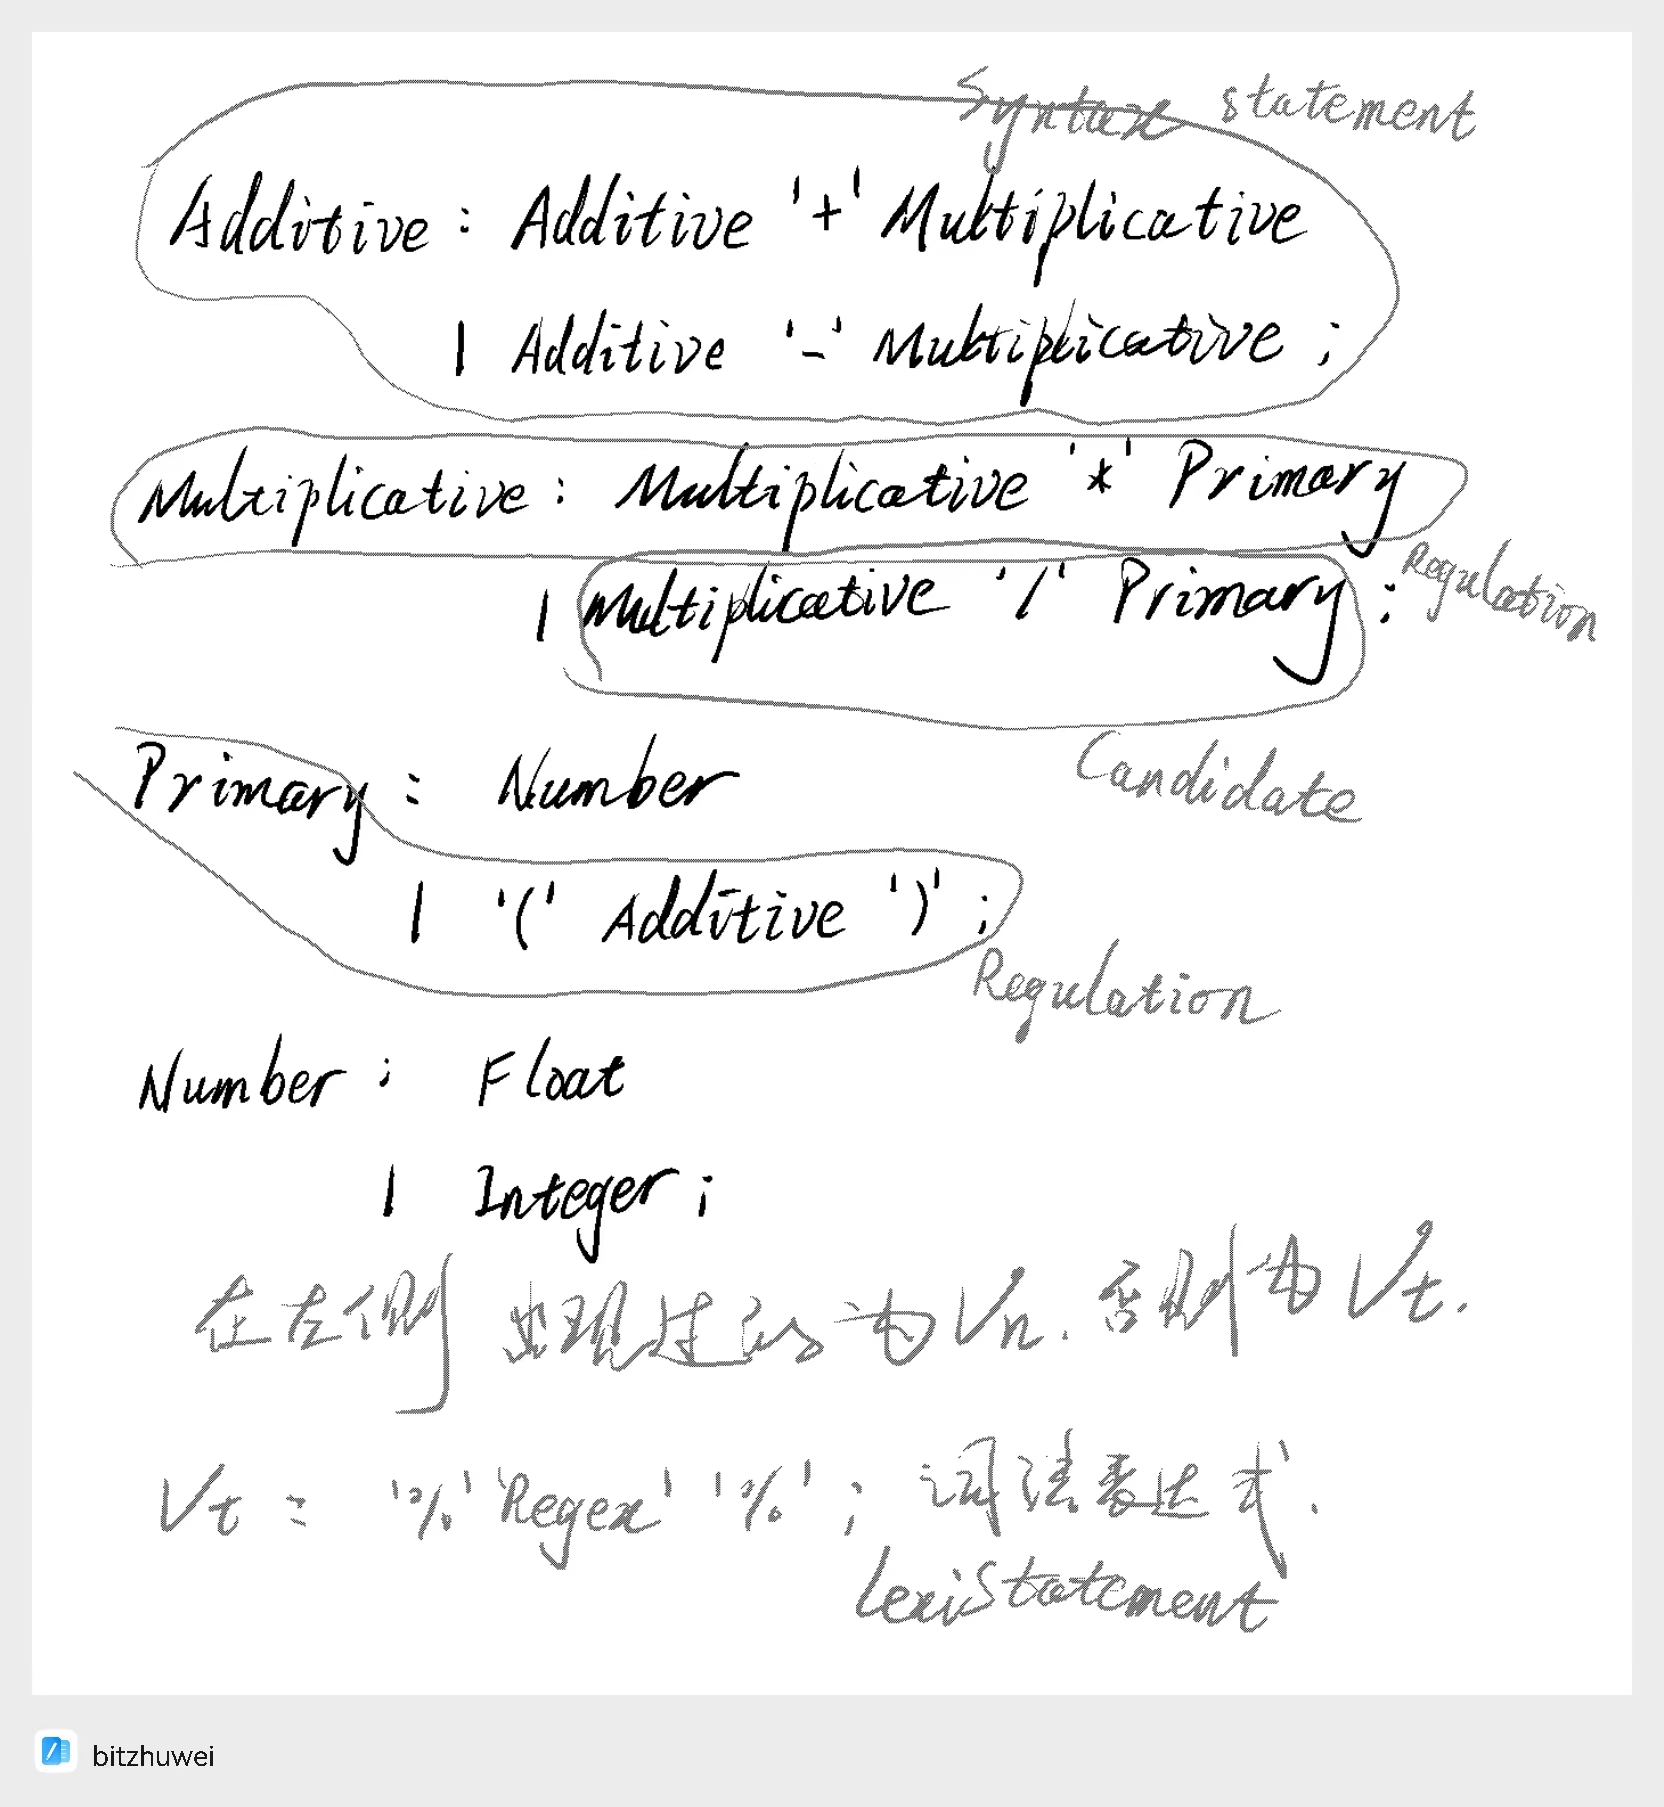 Syntax statement
Additive : Additive '+' Multiplicative
| Additive '-' Multiplicative ;
Multiplicative : Multiplicative '*' Primary
| Multiplicative '/' Primary ;
Regulation
Candidate
Primary : Number
| '(' Additive ')' ;
Regulation
Number : Float
| Integer ;
在左侧出现过的为Vn. 否则为Vt.
Vt : '%' 'Regex' '%' ; 词法表达式.
LexiStatement
bitzhuwei